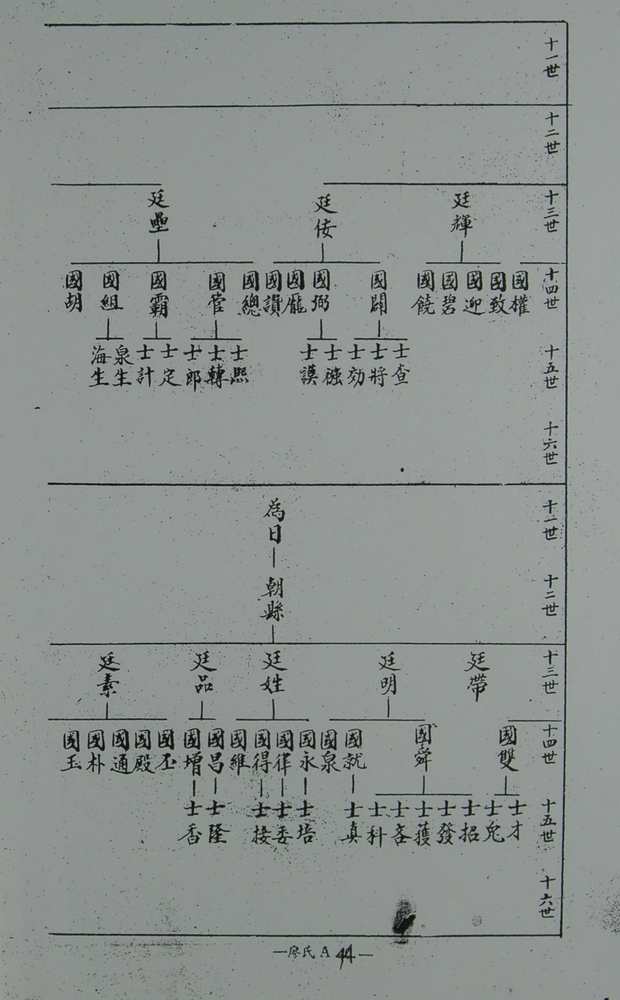 十一世
十二世
十三世
廷輝
廷佞
廷壘
十四世
國權
國致
國迎
國碧
國饒
國闢
國弼
國龐
國讚
國總
國管
國霸
國組
國胡
十五世
士查
士將
士効
士謨
士熙
士轉
士郎
士定
士計
泉生
海生
十六世
十一世
為日
十二世
朝縣
十三世
廷帶
廷明
廷姓
廷品
廷素
十四世
國雙
國舜
國就
國泉
國永
國律
國得
國維
國昌
國增
國丕
國殿
國通
國朴
國玉
十五世
士才
士兒
士招
士發
士獲
士科
士真
士培
士委
士接
士隆
士香
十六世
—廖氏 A 44—